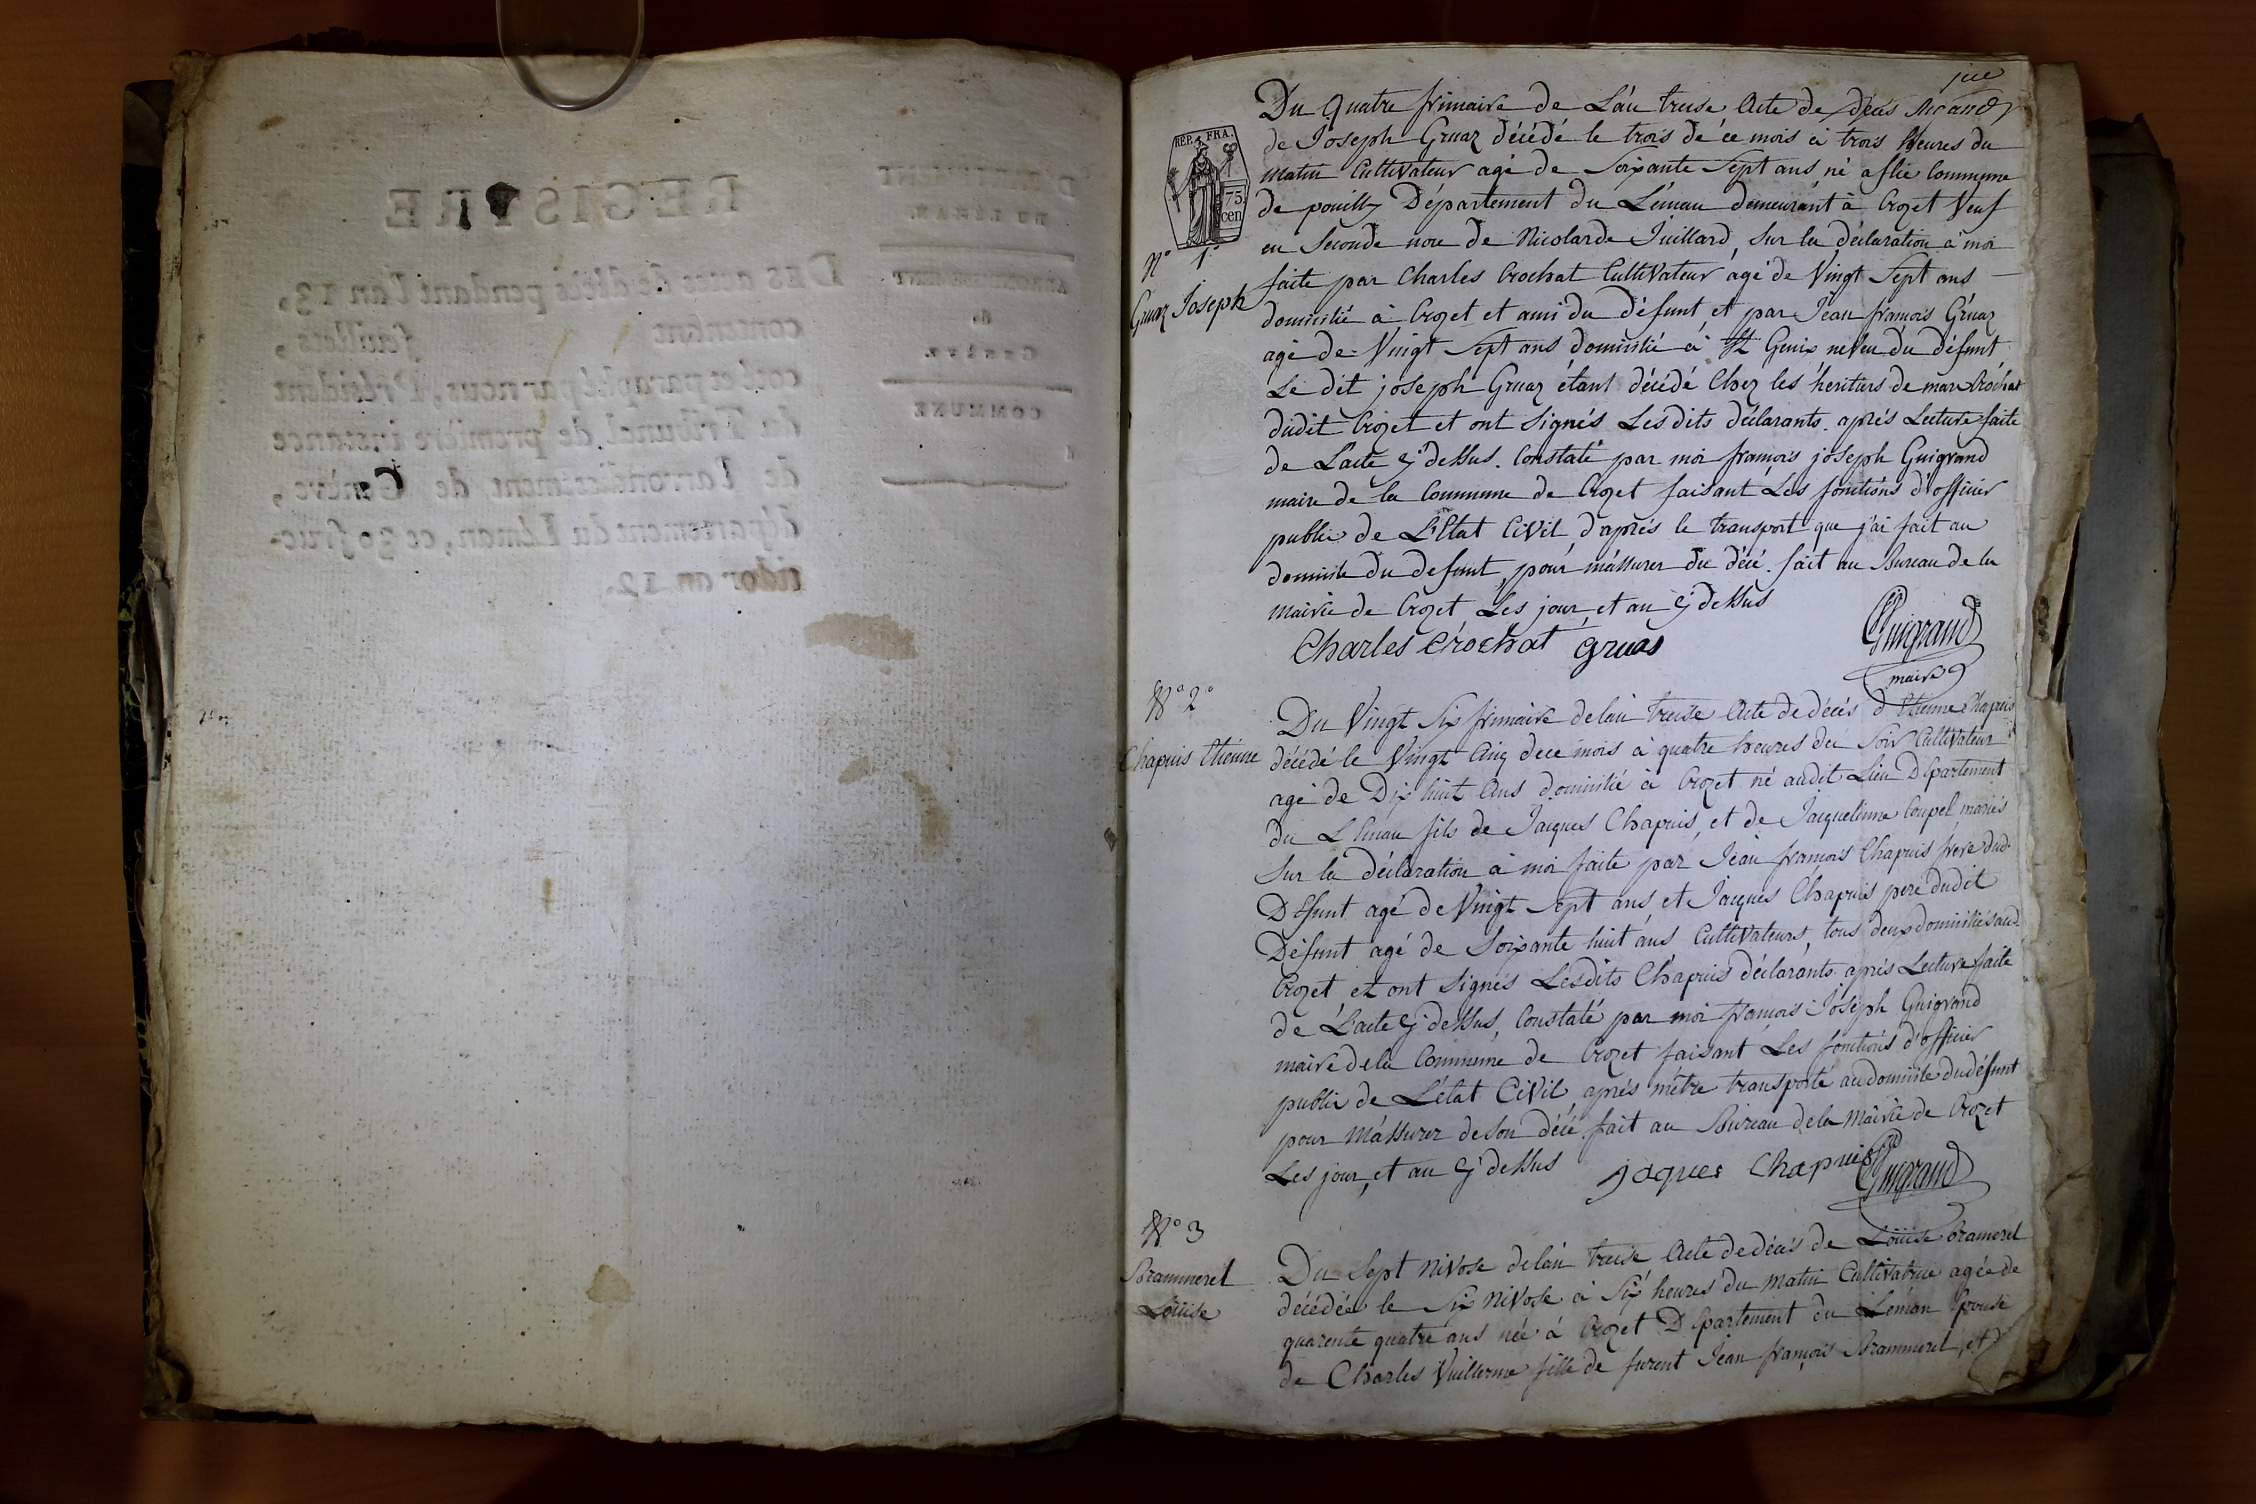 DÉPARTEMENT
DU LÉMAN.
ARRONDISSEMENT
de
Genève.
COMMUNE
d
REGISTRE
DES actes de décès pendant l'an 13,
contenant feuillets,
coté et paraphé par nous, Président
du Tribunal de première instance
de l'arrondissement de Genève,
département du Léman, ce 30 fruc-
tidor an 12.
REP. FRA.
75
cen
N° 1
Gruaz Joseph
Du quatre frimaire de L'an treise Acte de décés
de Joseph Gruaz décédé le trois de ce mois à trois heures du
matin Cultivateur agé de Soixante Sept ans né a flie Commune
de pouilly Département du Léman demeurant à Crozet Veuf
en Seconde noce de Nicolarde Juillard, Sur la déclaration à moi
faite par Charles Crochat Cultivateur agé de Vingt Sept ans
domicilié à Crozet et ami du défunt et par Jean françois Gruaz
agé de Vingt Sept ans domicilié à St Genix neveu du défunt
Le dit joseph Gruaz étant décédé Chez les héritiers de marc Crochat
dudit Crozet et ont signés Les dits déclarants. aprés Lecture faite
de L'acte cy dessus. Constaté par moi françois joseph Guigrand
maire de la Commune de Crozet faisant Les fonctions d'officier
public de L'Etat Civil d'aprés le transport que j'ai fait au
domicile du defunt, pour m'assurer du décé. fait au Bureau de la
mairie de Crozet Les jour, et an cy dessus
Charles Crochat gruas Guigrand
maire
N° 2°
Chapuis Etienne
Du Vingt Six frimaire de lan treise Acte de décés d'Etienne Chapuis
décédé le Vingt Cinq de ce mois à quatre heures du Soir Cultivateur
agé de Dix huit Ans domicilié à Crozet né audit Lieu Département
du Léman fils de Jacques Chapuis, et de Jacquelinne Coupel mariés
Sur la déclaration à moi faite par Jean françois Chapuis frere dud.
Défunt agé de Vingt Sept ans et Jacques Chapuis pere dudit
Défunt agé de Soixante huit ans Cultivateurs, tous deux domiciliés aud.
Crozet, et ont signés Lesdits Chapuis déclarants. aprés Lecture faite
de L'acte cy dessus, Constaté par moi françois Joseph Guigrand
maire de la Commune de Crozet faisant Les fonctions d'officier
public de L'état Civil aprés m'être transporté au domicile du défunt
pour m'assurer de son décé. fait au Bureau de la Mairie de Crozet
Les jour, et an cy dessus jaques Chapuis Guigrand
N° 3
Brammerel
Loüise
Du Sept nivose de lan treise Acte de décés de Loüise Bramerel
décédée le Six nivose à Six heures du matin Cultivatrice agée de
quarente quatre ans née à Crozet Département du Léman Epouse
de Charles Vuillerme fille de furent Jean françois Brammerel, et